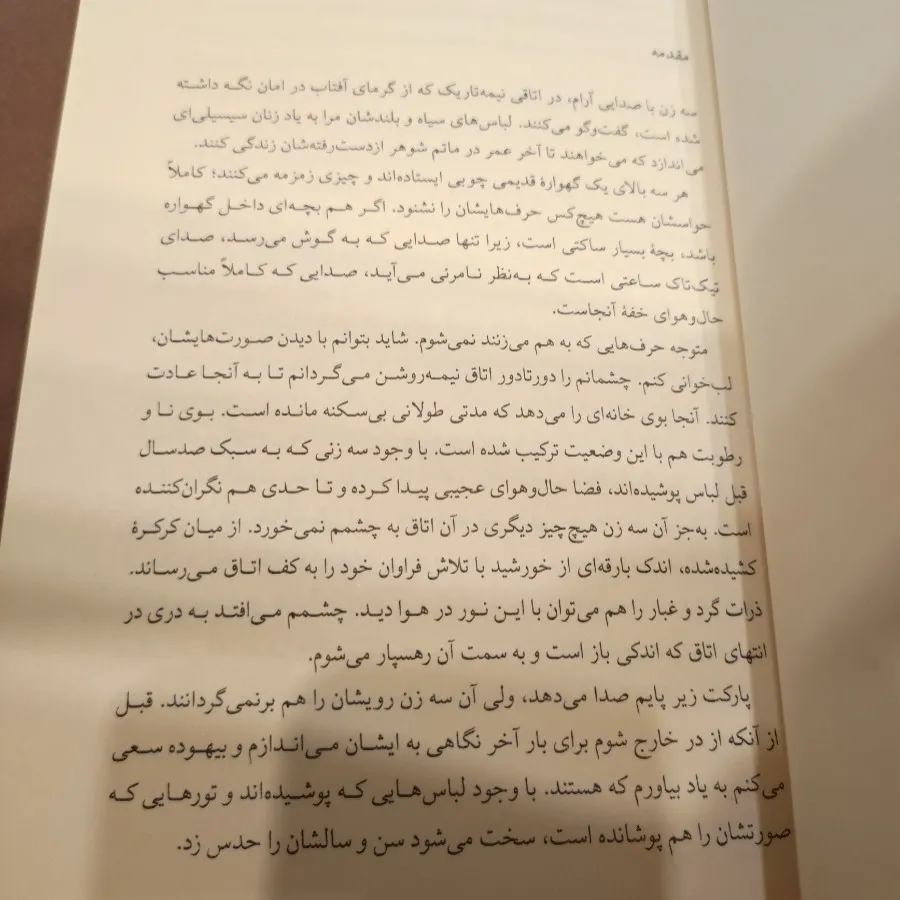 مقدمه
سه زن با صدایی آرام، در اتاقی نیمه‌تاریک که از گرمای آفتاب در امان نگه داشته
شده است، گفت‌وگو می‌کنند. لباس‌های سیاه و بلندشان مرا به یاد زنان سیسیلی‌ای
می‌اندازد که می‌خواهند تا آخر عمر در ماتم شوهر ازدست‌رفته‌شان زندگی کنند.
هر سه بالای یک گهوارهٔ قدیمی چوبی ایستاده‌اند و چیزی زمزمه می‌کنند؛ کاملاً
حواسشان هست هیچ‌کس حرف‌هایشان را نشنود. اگر هم بچه‌ای داخل گهواره
باشد، بچهٔ بسیار ساکتی است، زیرا تنها صدایی که به گوش می‌رسد، صدای
تیک‌تاک ساعتی است که به‌نظر نامرئی می‌آید، صدایی که کاملاً مناسب
حال‌وهوای خفهٔ آنجاست.
متوجه حرف‌هایی که به هم می‌زنند نمی‌شوم. شاید بتوانم با دیدن صورت‌هایشان،
لب‌خوانی کنم. چشمانم را دورتادور اتاق نیمه‌روشن می‌گردانم تا به آنجا عادت
کنند. آنجا بوی خانه‌ای را می‌دهد که مدتی طولانی بی‌سکنه مانده است. بوی نا و
رطوبت هم با این وضعیت ترکیب شده است. با وجود سه زنی که به سبک صدسال
قبل لباس پوشیده‌اند، فضا حال‌وهوای عجیبی پیدا کرده و تا حدی هم نگران‌کننده
است. به‌جز آن سه زن هیچ‌چیز دیگری در آن اتاق به چشمم نمی‌خورد. از میان کرکرهٔ
کشیده‌شده، اندک بارقه‌ای از خورشید با تلاش فراوان خود را به کف اتاق می‌رساند.
ذرات گرد و غبار را هم می‌توان با این نور در هوا دید. چشمم می‌افتد به دری در
انتهای اتاق که اندکی باز است و به سمت آن رهسپار می‌شوم.
پارکت زیر پایم صدا می‌دهد، ولی آن سه زن رویشان را هم برنمی‌گردانند. قبل
از آنکه از در خارج شوم برای بار آخر نگاهی به ایشان می‌اندازم و بیهوده سعی
می‌کنم به یاد بیاورم که هستند. با وجود لباس‌هایی که پوشیده‌اند و تورهایی که
صورتشان را هم پوشانده است، سخت می‌شود سن و سالشان را حدس زد.